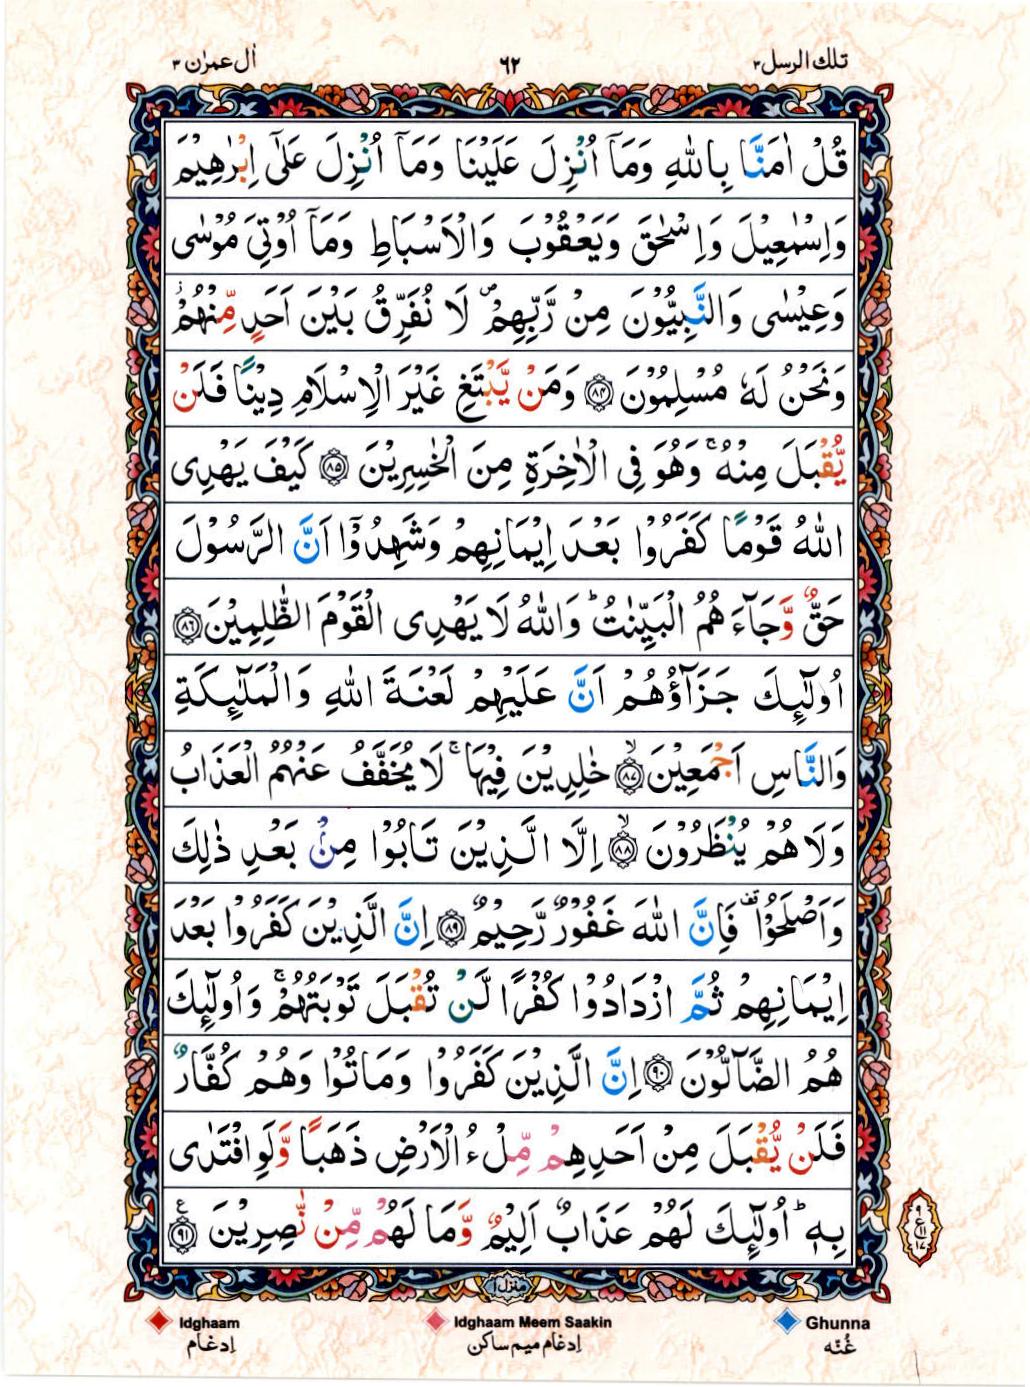 تلك الرسل ٣
٦٢
اٰل عمرٰن ٣
قُلْ اٰمَنَّا بِاللّٰهِ وَمَاۤ اُنْزِلَ عَلَيْنَا وَمَاۤ اُنْزِلَ عَلٰۤى اِبْرٰهِيْمَ
وَاِسْمٰعِيْلَ وَاِسْحٰقَ وَيَعْقُوْبَ وَالْاَسْبَاطِ وَمَاۤ اُوْتِىَ مُوْسٰى
وَعِيْسٰى وَالنَّبِيُّوْنَ مِنْ رَّبِّهِمْ ۪ لَا نُفَرِّقُ بَيْنَ اَحَدٍ مِّنْهُمْ ؗ
وَنَحْنُ لَهٗ مُسْلِمُوْنَ ۝٨٤ وَمَنْ يَّبْتَغِ غَيْرَ الْاِسْلَامِ دِيْنًا فَلَنْ
يُّقْبَلَ مِنْهُ ۚ وَهُوَ فِى الْاٰخِرَةِ مِنَ الْخٰسِرِيْنَ ۝٨٥ كَيْفَ يَهْدِى
اللّٰهُ قَوْمًا كَفَرُوْا بَعْدَ اِيْمَانِهِمْ وَشَهِدُوْۤا اَنَّ الرَّسُوْلَ
حَقٌّ وَّجَآءَهُمُ الْبَيِّنٰتُ ؕ وَاللّٰهُ لَا يَهْدِى الْقَوْمَ الظّٰلِمِيْنَ ۝٨٦
اُولٰٓئِكَ جَزَآؤُهُمْ اَنَّ عَلَيْهِمْ لَعْنَةَ اللّٰهِ وَالْمَلٰٓئِكَةِ
وَالنَّاسِ اَجْمَعِيْنَ ۙ‏۝٨٧ خٰلِدِيْنَ فِيْهَا ۚ لَا يُخَفَّفُ عَنْهُمُ الْعَذَابُ
وَلَا هُمْ يُنْظَرُوْنَ ۙ‏۝٨٨ اِلَّا الَّذِيْنَ تَابُوْا مِنْۢ بَعْدِ ذٰلِكَ
وَاَصْلَحُوْا قف فَاِنَّ اللّٰهَ غَفُوْرٌ رَّحِيْمٌ ۝٨٩ اِنَّ الَّذِيْنَ كَفَرُوْا بَعْدَ
اِيْمَانِهِمْ ثُمَّ ازْدَادُوْا كُفْرًا لَّنْ تُقْبَلَ تَوْبَتُهُمْ ۚ وَاُولٰٓئِكَ
هُمُ الضَّآلُّوْنَ ۝٩٠ اِنَّ الَّذِيْنَ كَفَرُوْا وَمَاتُوْا وَهُمْ كُفَّارٌ
فَلَنْ يُّقْبَلَ مِنْ اَحَدِهِمْ مِّلْءُ الْاَرْضِ ذَهَبًا وَّلَوِ افْتَدٰى
بِهٖ ؕ اُولٰٓئِكَ لَهُمْ عَذَابٌ اَلِيْمٌ وَّمَا لَهُمْ مِّنْ نّٰصِرِيْنَ ۝٩١ ع
٩
ع ١١
١٧
منزل ١
Idghaam
Idghaam Meem Saakin
Ghunna
اِدغام
اِدغام میم ساکن
غُنّه